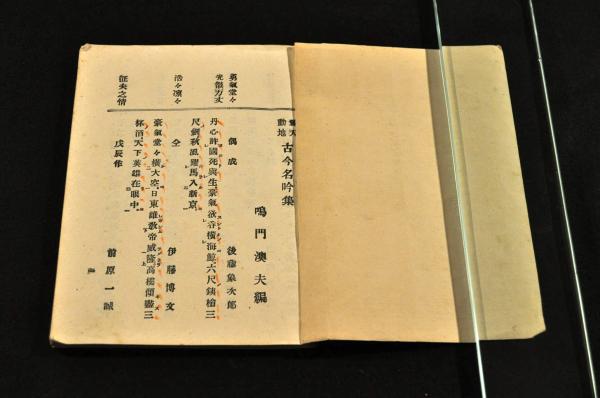 動地 古今名吟集
鳴門澳夫編
偶成 後藤象次郎
丹心許國死與生豪氣欲呑橫海鯨六尺鐵槍三
尺劍秋風躍馬入新京
仝 伊藤博文
豪氣堂々橫大空日東誰敎帝威隆高樓傾盡三
杯酒天下英雄在眼中
戊辰作 前原一誠
勇氣堂々
光燄万丈
浩々凛々
征夫之情